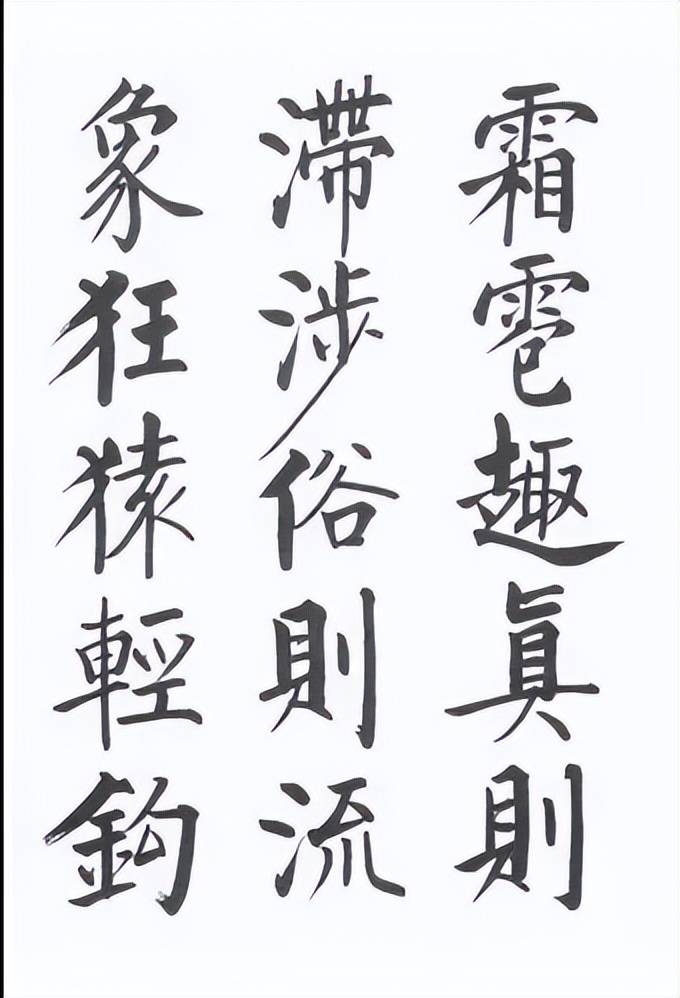 霜雹趣真則
滯涉俗則流
象狂猿輕鈎